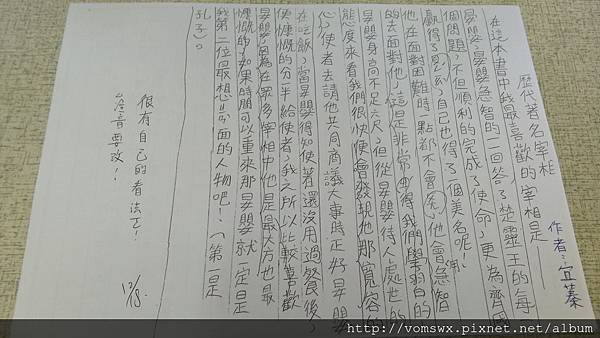 歷代著名宰相
作者:宜蓁
在這本書中我最喜歡的宰相是
晏嬰,晏嬰急智的一回答了楚靈王的每
個問題,不但順利的完成了使命,更為齊國
贏得了見 ,自己也得了個美名呢!
他在面對困難時一點都不會 ,他會用急智
的去面對他,這是非常 得我們學習的
晏嬰身高不足六尺,但從晏嬰待人處世的
態度來看我們很快便會發現他那寬容的
心,使者去請他共同商議大事時正好晏嬰
在吃飯,當晏嬰得知使著還沒用過餐後,
便慷慨的分半給使者,我之所以比較喜歡
晏嬰因為在眾多宰相中他是最大方也最
慷慨的,如果時間可以重來那晏嬰就一定是
我第二位最想見面的人物吧!(第一是
孔子)。
很有自己的看法了!
注音要改!
12/13.
http://vomswx.pixnet.net/album